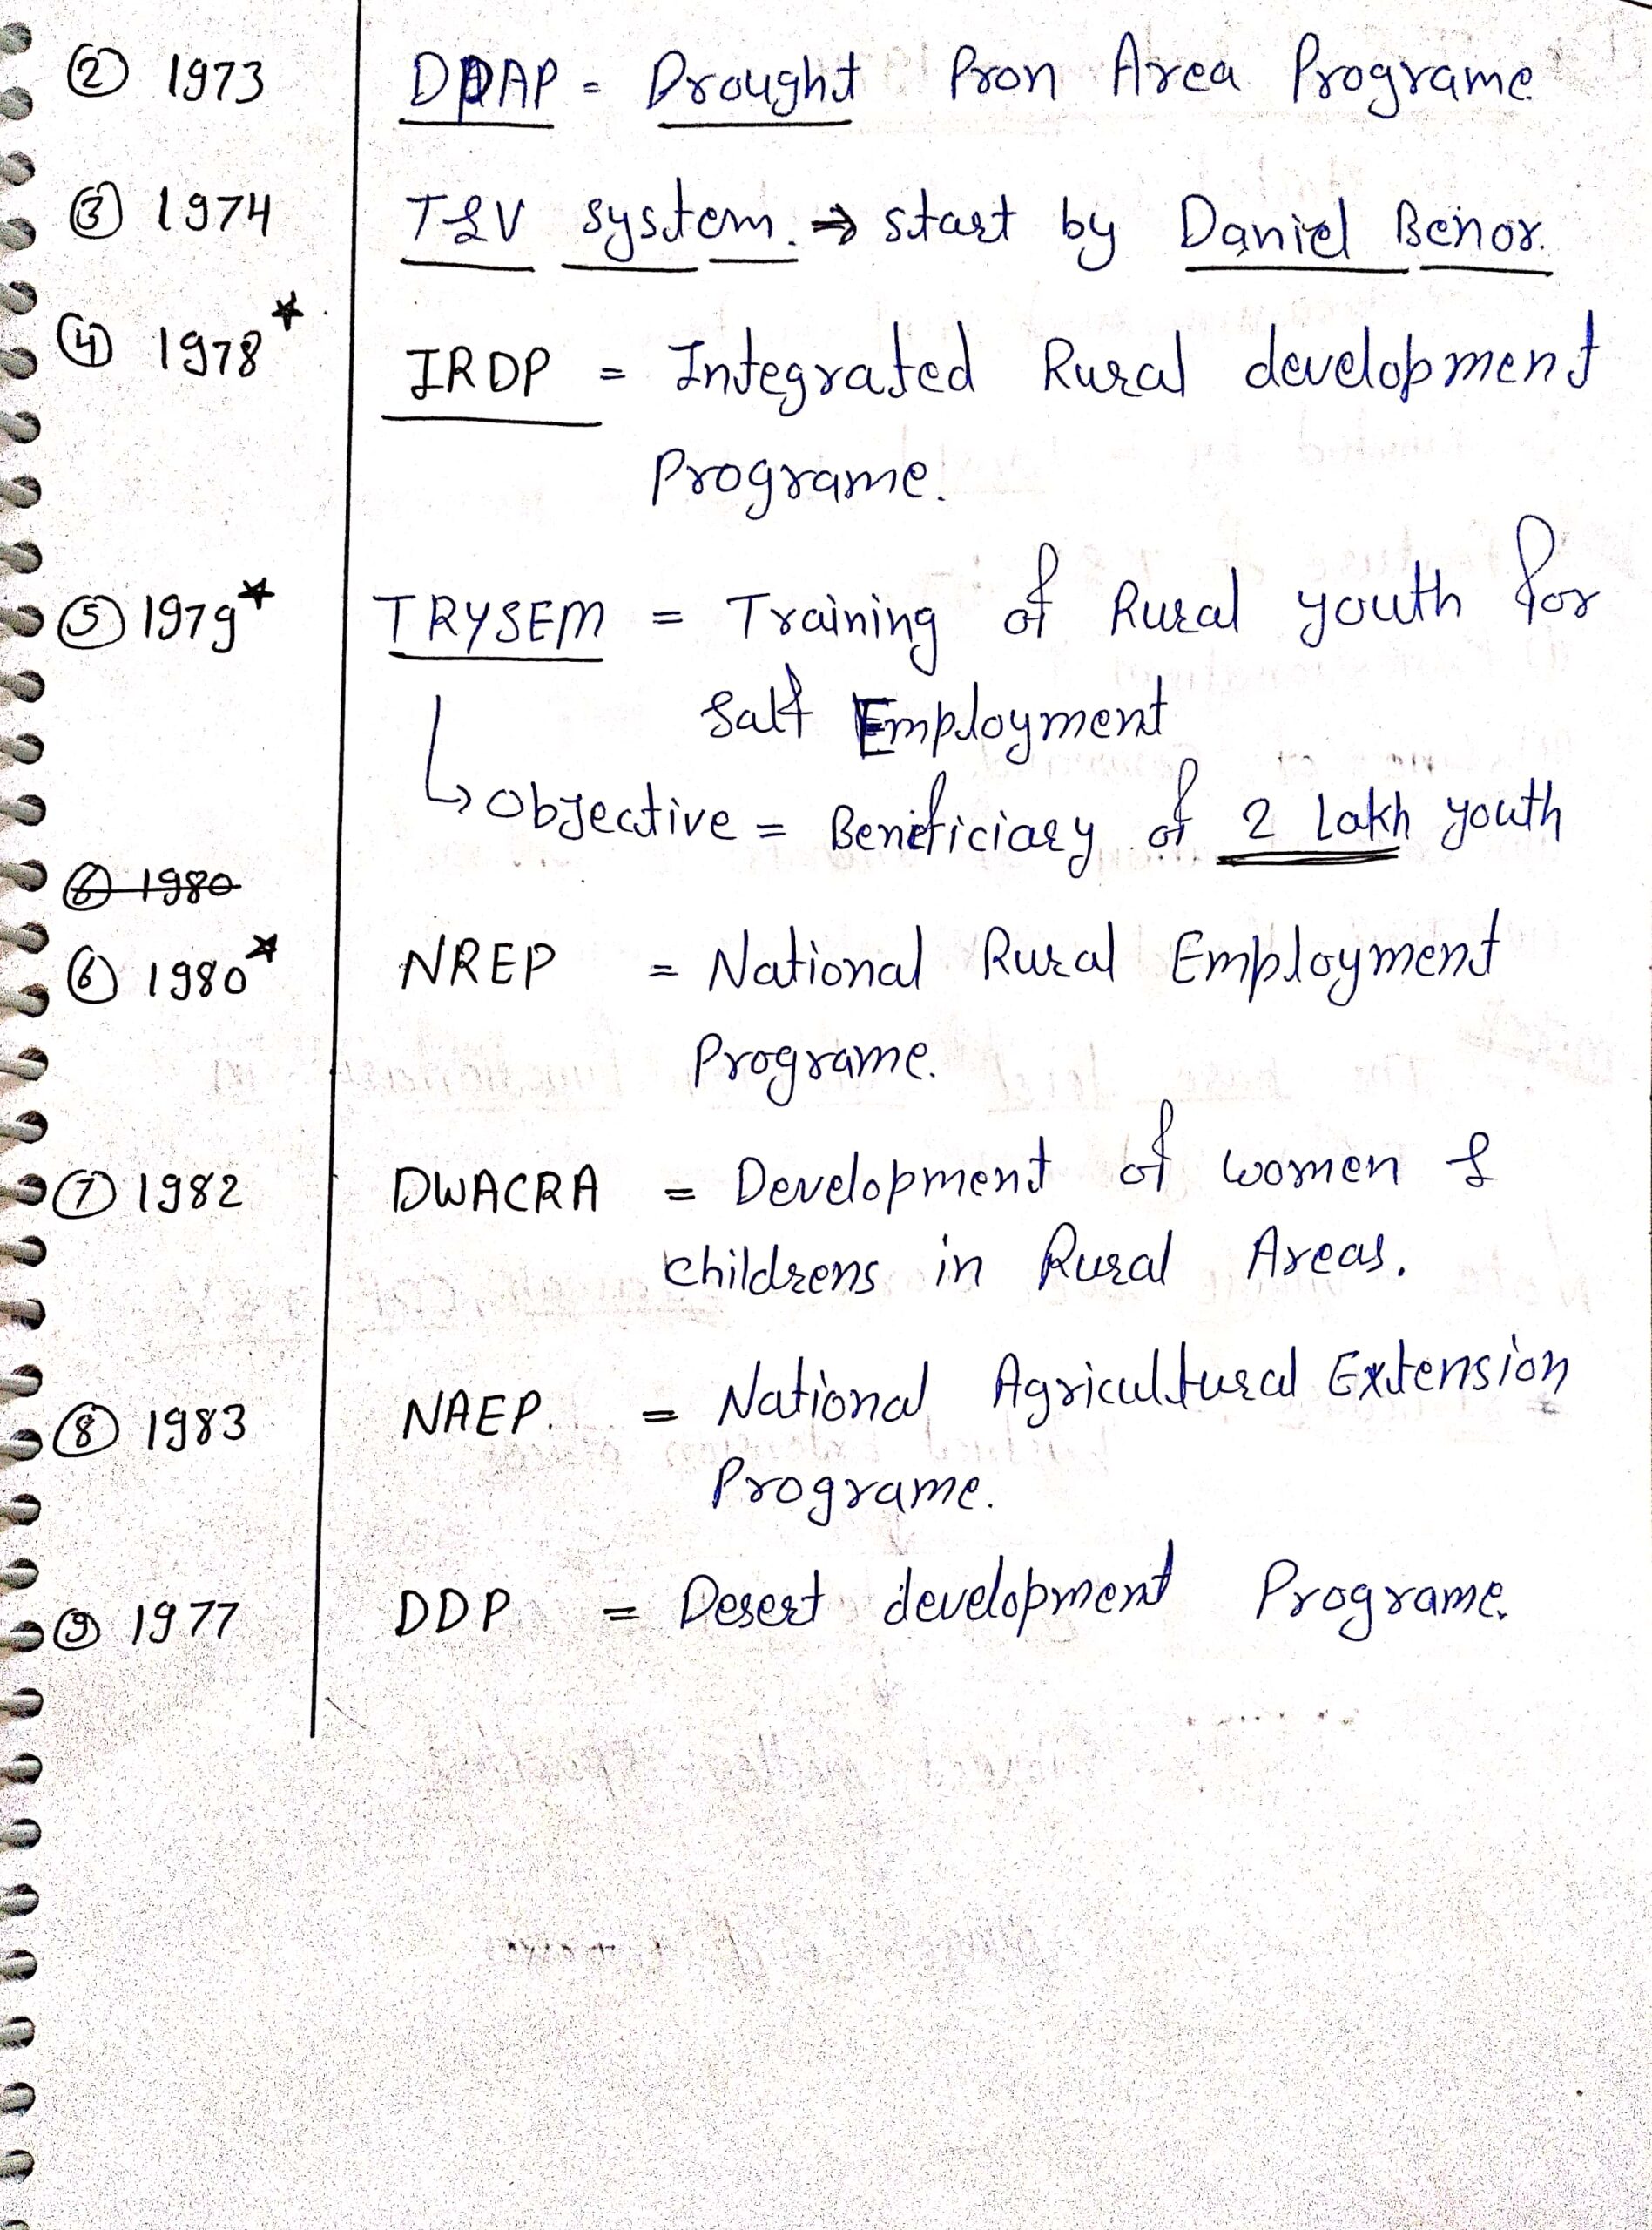 ② 1973 DPAP = Drought Pron Area Programe
③ 1974 T&V system. ⇒ start by Daniel Benor.
④ 1978* IRDP = Integrated Rural development
Programe.
⑤ 1979* TRYSEM = Training of Rural youth for
Salf Employment
↳ Objective = Beneficiary of 2 Lakh youth
⑥ 1980
⑥ 1980* NREP = National Rural Employment
Programe.
⑦ 1982 DWACRA = Development of women &
childrens in Rural Areas.
⑧ 1983 NAEP. = National Agricultural Extension
Programe.
⑨ 1977 DDP = Desert development Programe.